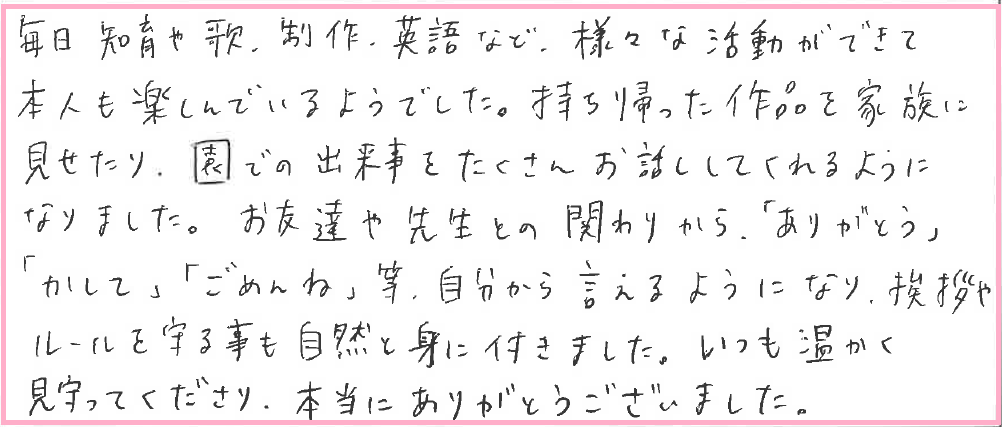 毎日 知育や歌、制作、英語など、様々な活動ができて
本人も楽しんでいるようでした。持ち帰った作品を家族に
見せたり、園での出来事をたくさんお話ししてくれるように
なりました。お友達や先生との関わりから、「ありがとう」
「かして」「ごめんね」等、自分から言えるようになり、挨拶や
ルールを守る事も自然と身に付きました。いつも温かく
見守ってくださり、本当にありがとうございました。